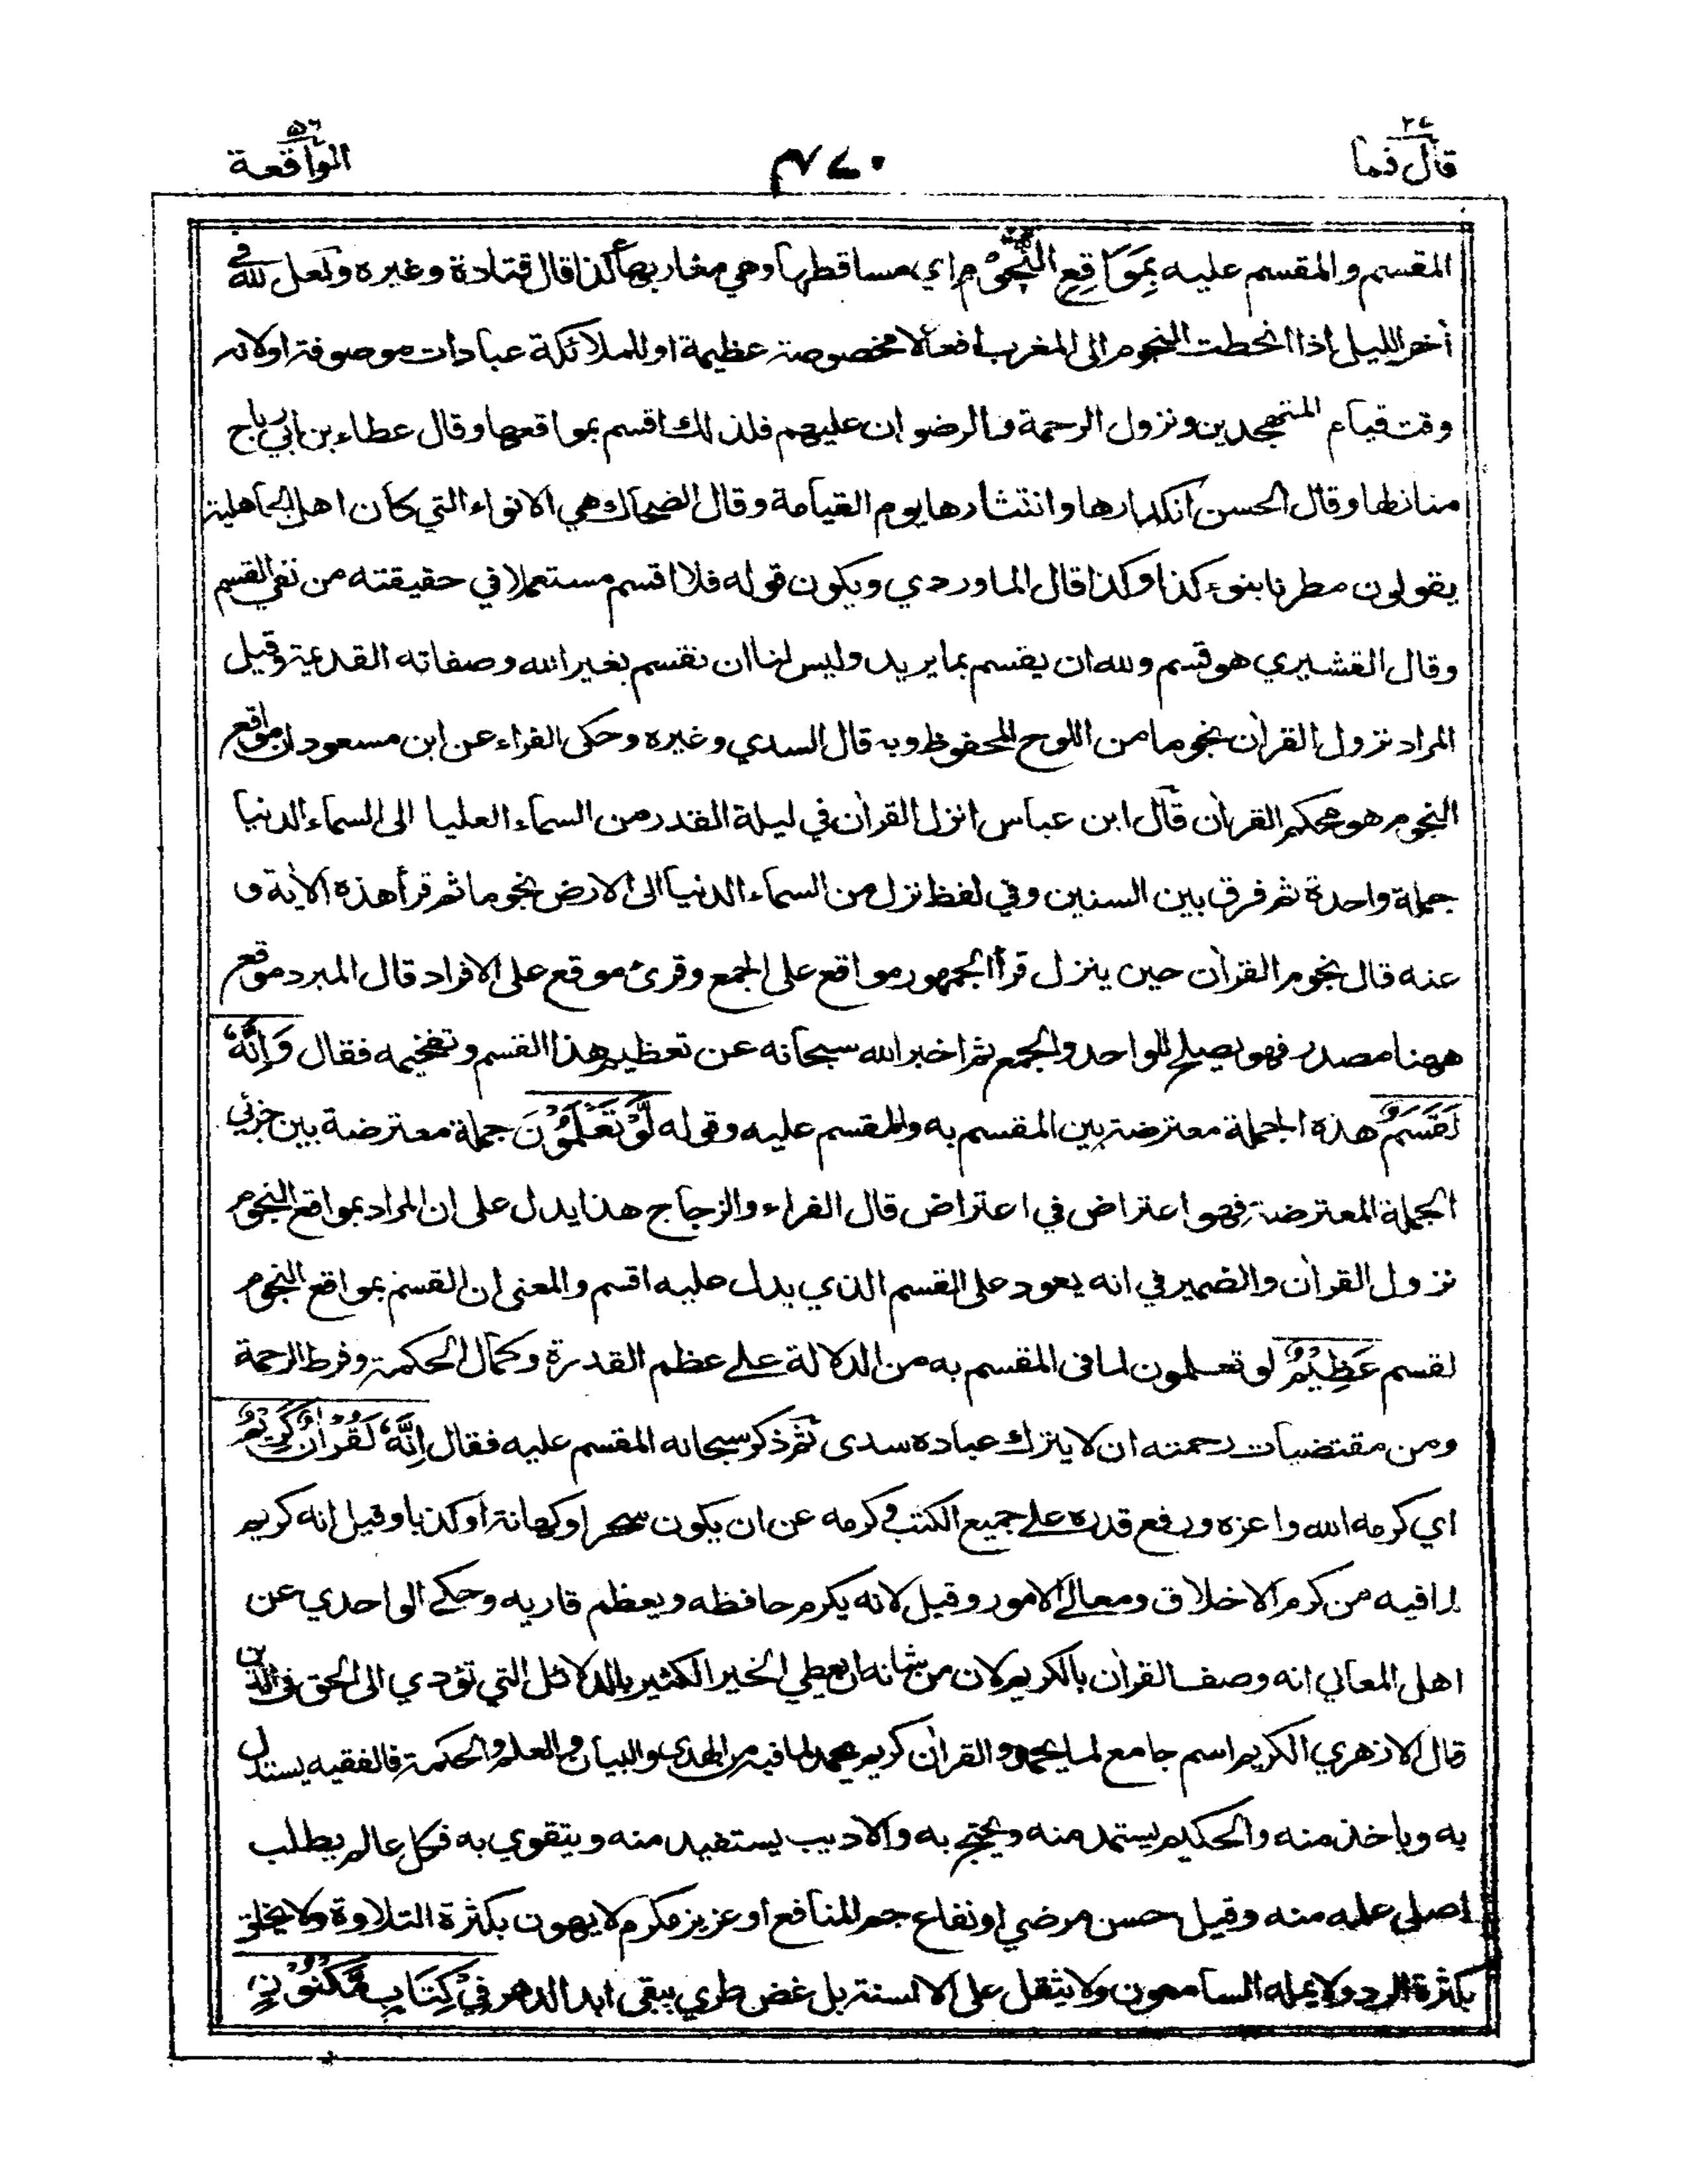 قال فما ٢٧
٤٧٠
الواقعة ٥٦
المقسم والمقسم عليه بِمَوَاقِعِ النُّجُوْمِ اي مساقطها وهي مغاربها كذا قال قتادة وغيره ولعل لله في
أخر الليل إذا انحطت النجوم الى المغرب أفعالا مخصوصة عظيمة او للملائكة عبادات موصوفة اولانه
وقت قيام المتهجدين ونزول الرحمة والرضوان عليهم فلذلك اقسم بمواقعها وقال عطاء بن ابي رباح
منازلها وقال الحسن انكدارها وانتثارها يوم القيامة وقال الضحاك هي الانواء التي كان اهل الجاهلية
يقولون مطرنا بنوء كذا وكذا قال الماوردي ويكون قوله فلا اقسم مستعملا في حقيقته من نفي القسم
وقال القشيري هو قسم ولله ان يقسم بما يريد وليس لنا ان نقسم بغير الله وصفاته القديمة وقيل
المراد نزول القرأن نجوما من اللوح المحفوظ وبه قال السدي وغيره وحكى الفراء عن ابن مسعود ان مواقع
النجوم هو محكم القرأن قال ابن عباس انزل القرأن في ليلة القدر من السماء العليا الى السماء الدنيا
جملة واحدة ثم فرق بين السنين وفي لفظ نزل من السماء الدنيا الى الارض نجوما ثم قرأ هذه الأية و
عنه قال نجوم القرأن حين ينزل قرأ الجمهور مواقع على الجمع وقرئ موقع على الافراد قال المبرد موقع
ههنا مصدر فهو يصلح للواحد والجمع ثم اخبر الله سبحانه عن تعظيم هذا القسم وتفخيمه فقال وَإِنَّهُ
لَقَسَمٌ هذه الجملة معترضة بين المقسم به والمقسم عليه وقوله لَّوْ تَعْلَمُوْنَ جملة معترضة بين جزئي
الجملة المعترضة فهو اعتراض في اعتراض قال الفراء والزجاج هذا يدل على ان المراد بمواقع النجوم
نزول القرأن والضمير في انه يعود على القسم الذي يدل عليه اقسم والمعنى ان القسم بمواقع النجوم
لقسم عَظِيْمٌ لو تعلمون لما في المقسم به من الدلالة على عظم القدرة وكمال الحكمة وفرط الرحمة
ومن مقتضيات رحمته ان لا يترك عباده سدى ثم ذكر سبحانه المقسم عليه فقال إِنَّهُ لَقُرْاٰنٌ كَرِيْمٌ
اي كرمه الله واعزه ورفع قدره على جميع الكتب وكرمه عن ان يكون سحرا او كهانة او كذبا وقيل انه كريم
لما فيه من كرم الاخلاق ومعالي الامور وقيل لانه يكرم حافظه ويعظم قاريه وحكى الواحدي عن
اهل المعاني انه وصف القرأن بالكريم لان من شانه ان يعطي الخير الكثير بالدلائل التي تؤدي الى الحق في الدين
قال الازهري الكريم اسم جامع لما يحمد والقرأن كريم يحمد لما فيه من الهدى والبيان والعلم والحكمة فالفقيه يستدل
به وياخذ منه والحكيم يستمد منه ويحتج به والاديب يستفيد منه ويتقوى به فكل عالم يطلب
اصل علمه منه وقيل حسن مرضي او نفاع جم المنافع او عزيز مكرم لا يهون بكثرة التلاوة ولا يخلق
بكثرة الرد ولا يمله السامعون ولا يثقل على الالسنة بل غض طري يبقى ابد الدهر فِيْ كِتَابٍ مَّكْنُوْنٍ